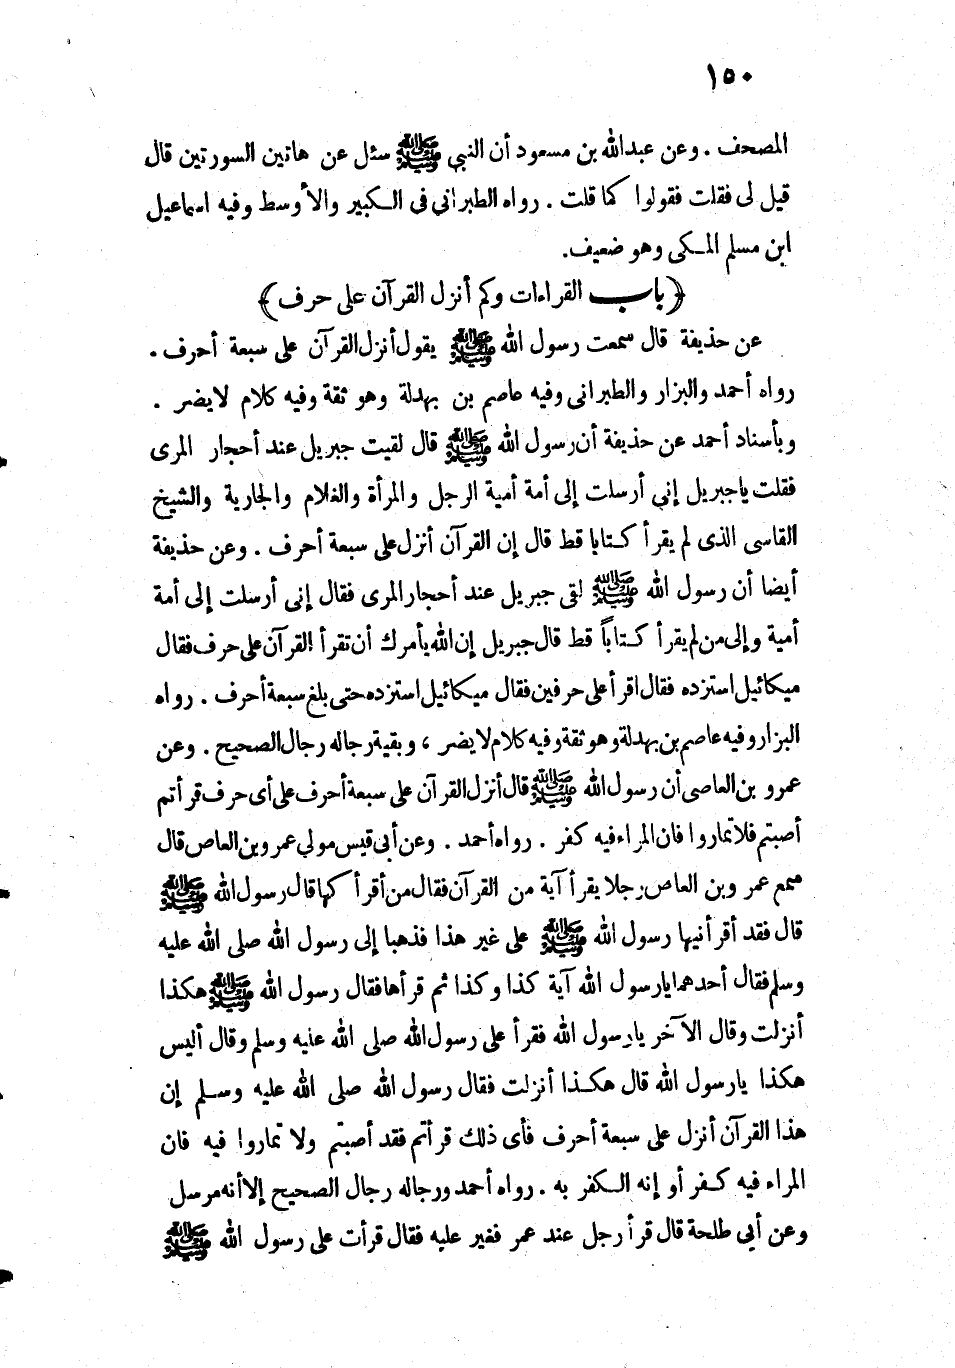 ١٥٠
المصحف . وعن عبدالله بن مسعود أن النبي ﷺ سئل عن هاتين السورتين قال
قيل لى فقلت فقولوا كما قلت . رواه الطبرانى فى الكبير والأوسط وفيه اسماعيل
ابن مسلم المكى وهو ضعيف.
﴿ باب القراءات وكم أنزل القرآن على حرف ﴾
عن حذيفة قال سمعت رسول الله ﷺ يقول أنزل القرآن على سبعة أحرف .
رواه أحمد والبزار والطبرانى وفيه عاصم بن بهدلة وهو ثقة وفيه كلام لا يضر .
وبأسناد أحمد عن حذيفة أن رسول الله ﷺ قال لقيت جبريل عند أحجار المرى
فقلت يا جبريل إنى أرسلت إلى أمة أمية الرجل والمرأة والغلام والجارية والشيخ
القاسى الذى لم يقرأ كتابا قط قال إن القرآن أنزل على سبعة أحرف . وعن حذيفة
أيضا أن رسول الله ﷺ لقى جبريل عند أحجار المرى فقال إنى أرسلت إلى أمة
أمية وإلى من لم يقرأ كتاباً قط قال جبريل إن الله يأمرك أن تقرأ القرآن على حرف فقال
ميكائيل استزده فقال اقرأ على حرفين فقال ميكائيل استزده حتى بلغ سبعة أحرف . رواه
البزار وفيه عاصم بن بهدلة وهو ثقة وفيه كلام لا يضر ، وبقية رجاله رجال الصحيح . وعن
عمرو بن العاصى أن رسول الله ﷺ قال أنزل القرآن على سبعة أحرف على أى حرف قرأتم
أصبتم فلا تماروا فان المراء فيه كفر . رواه أحمد . وعن أبى قيس مولي عمرو بن العاص قال
سمع عمرو بن العاص رجلا يقرأ آية من القرآن فقال من أقرأكها قال رسول الله ﷺ
قال فقد أقرأنيها رسول الله ﷺ على غير هذا فذهبا إلى رسول الله صلى الله عليه
وسلم فقال أحدهما يا رسول الله آية كذا وكذا ثم قرأها فقال رسول الله ﷺ هكذا
أنزلت وقال الآخر يا رسول الله فقرأ على رسول الله صلى الله عليه وسلم وقال أليس
هكذا يا رسول الله قال هكذا أنزلت فقال رسول الله صلى الله عليه وسلم إن
هذا القرآن أنزل على سبعة أحرف فأى ذلك قرأتم فقد أصبتم ولا تماروا فيه فان
المراء فيه كفر أو إنه الكفر به . رواه أحمد ورجاله رجال الصحيح إلا أنه مرسل
وعن أبي طلحة قال قرأ رجل عند عمر فغير عليه فقال قرأت على رسول الله ﷺ